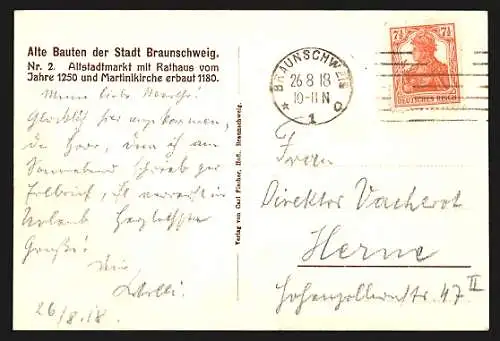 Alte Bauten der Stadt Braunschweig.
Nr. 2. Altstadtmarkt mit Rathaus vom
Jahre 1250 und Martinikirche erbaut 1180.
Meine liebe
Glücklich hier angekommen,
am
Sonnabend schrieb
Eilbrief, ist verreist in
Urlaub Herzlichste
Grüße!
Dein
Willi.
26/8.18.
Verlag von Carl Fischer, Hofl. Braunschweig.
BRAUNSCHWEIG
26 8 18
10-11 N
* 1 c
7½ 7½
DEUTSCHES REICH
Frau
Direktor Vacherot
Herne
Hohenzollernstr. 47 II